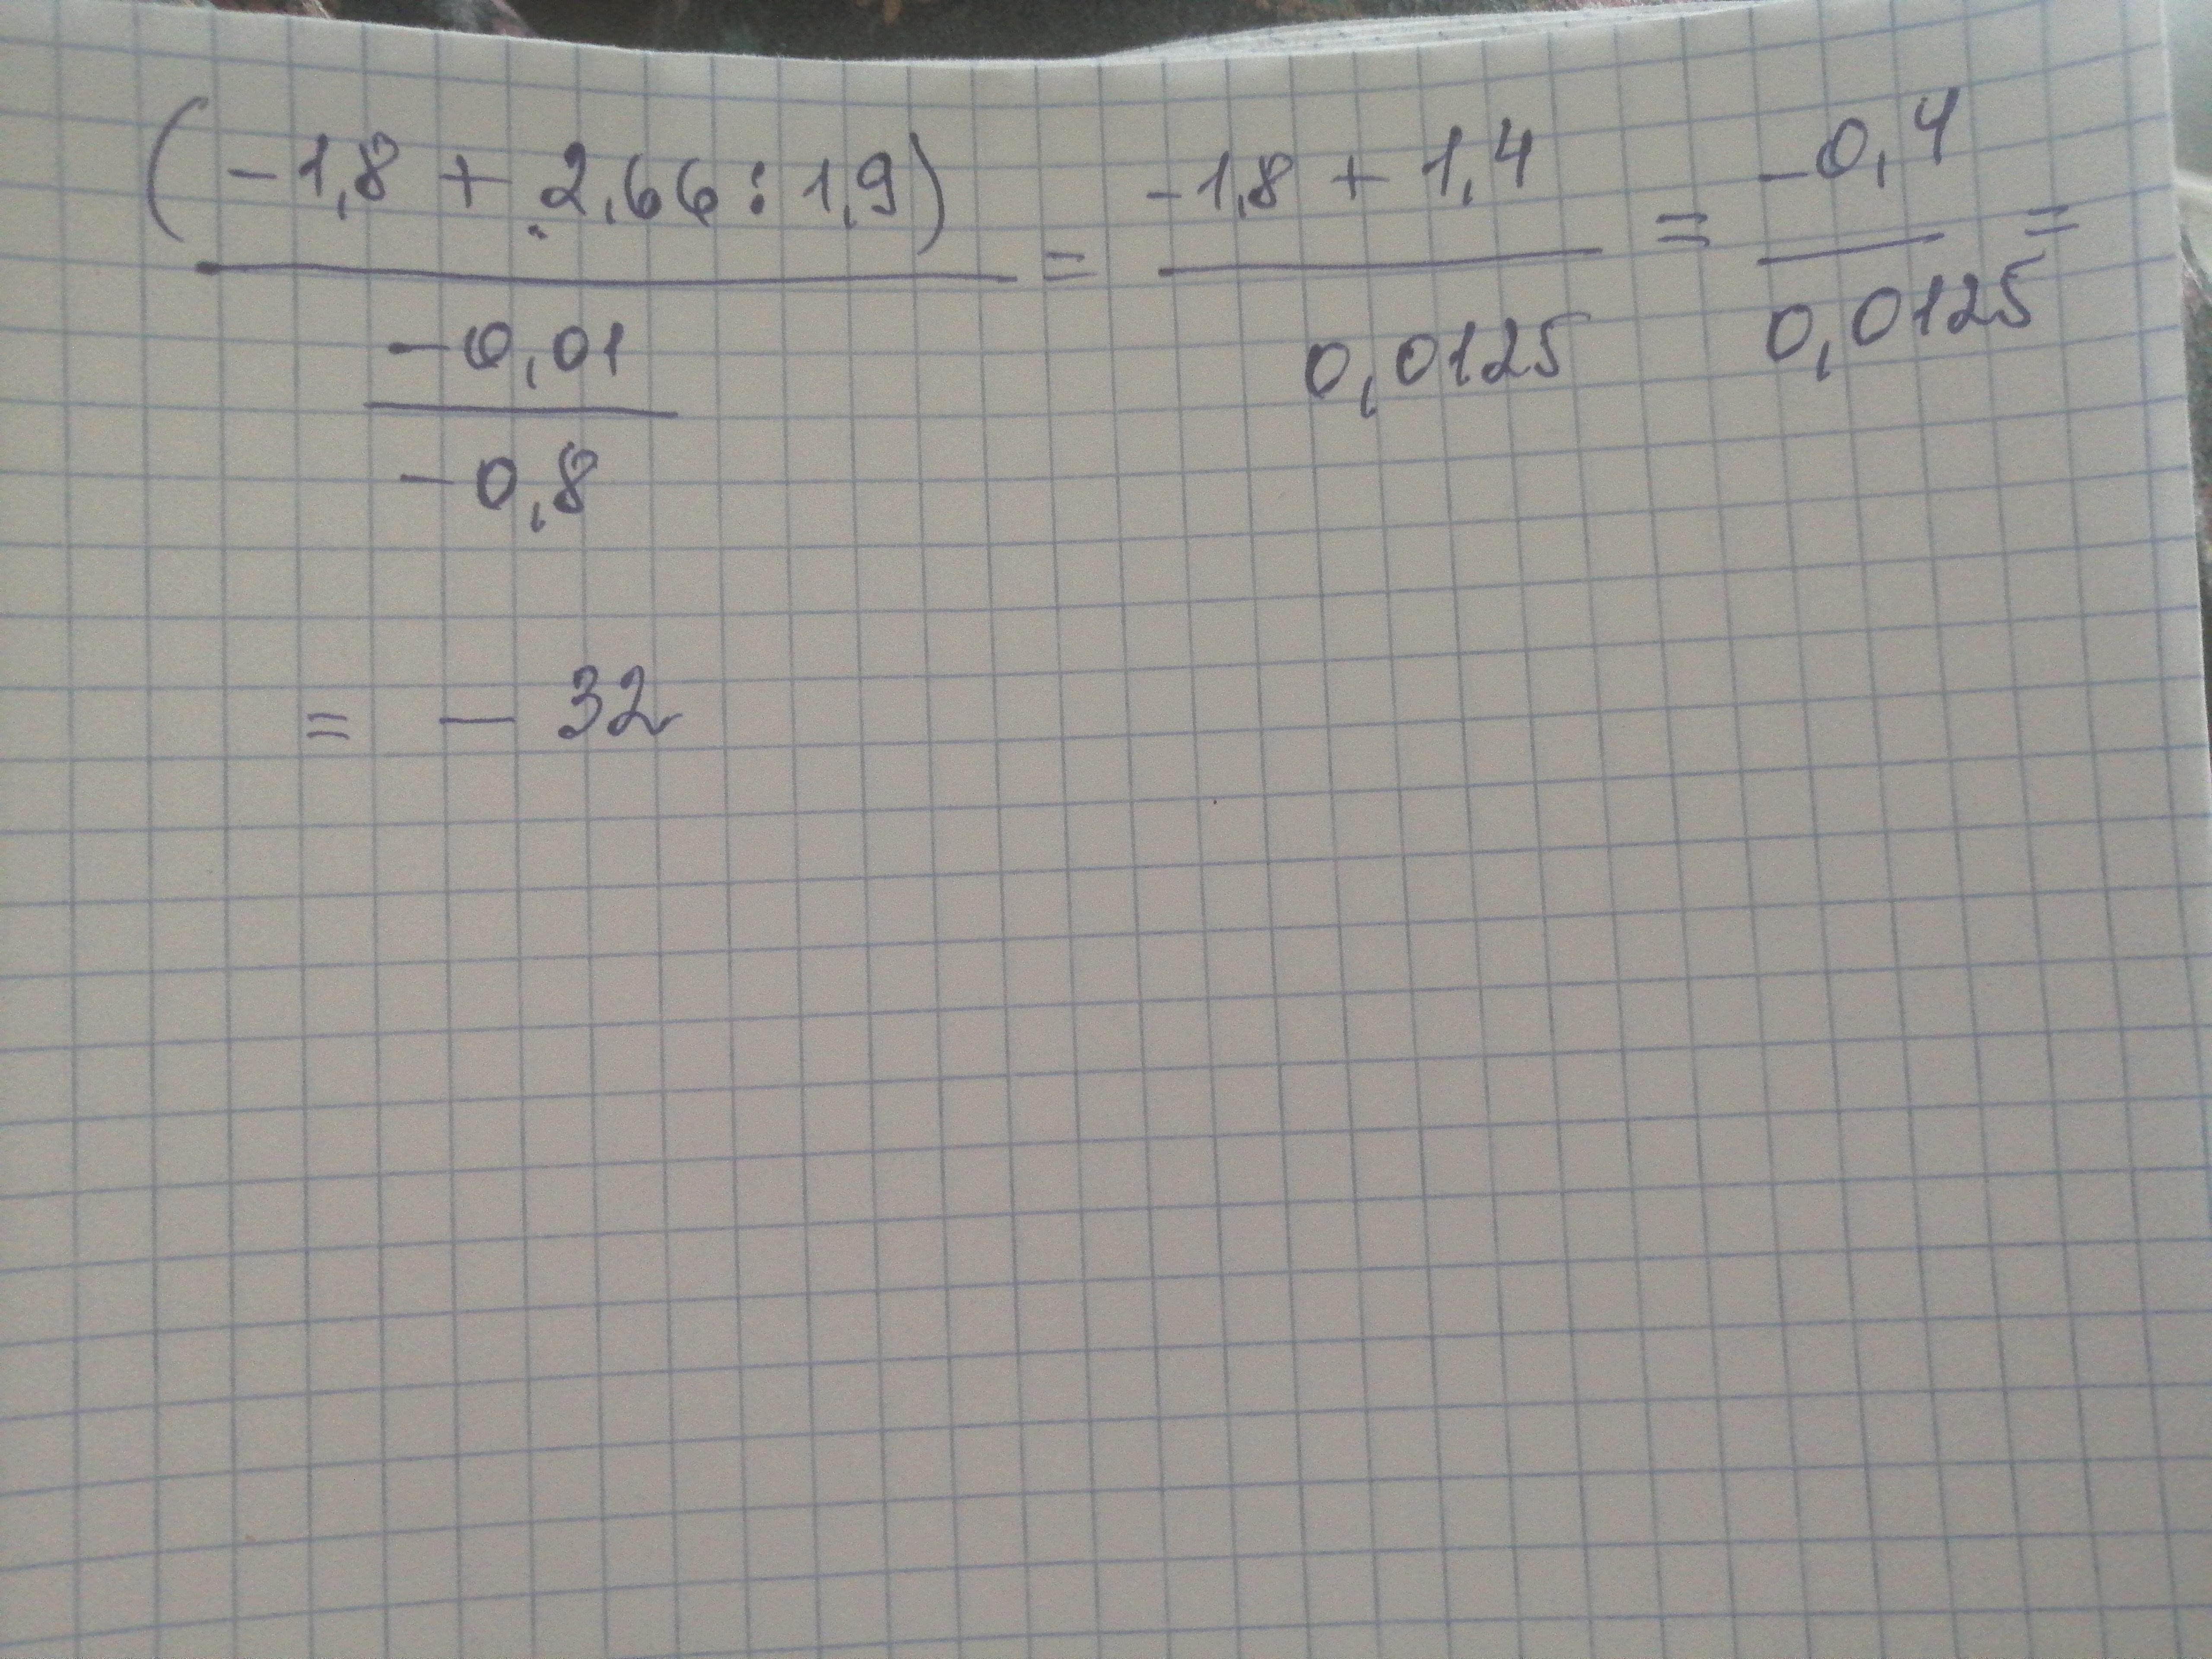 (-1,8 + 2,66 : 1,9) / (-0,01 / -0,8) = (-1,8 + 1,4) / 0,0125 = -0,4 / 0,0125 =
= - 32